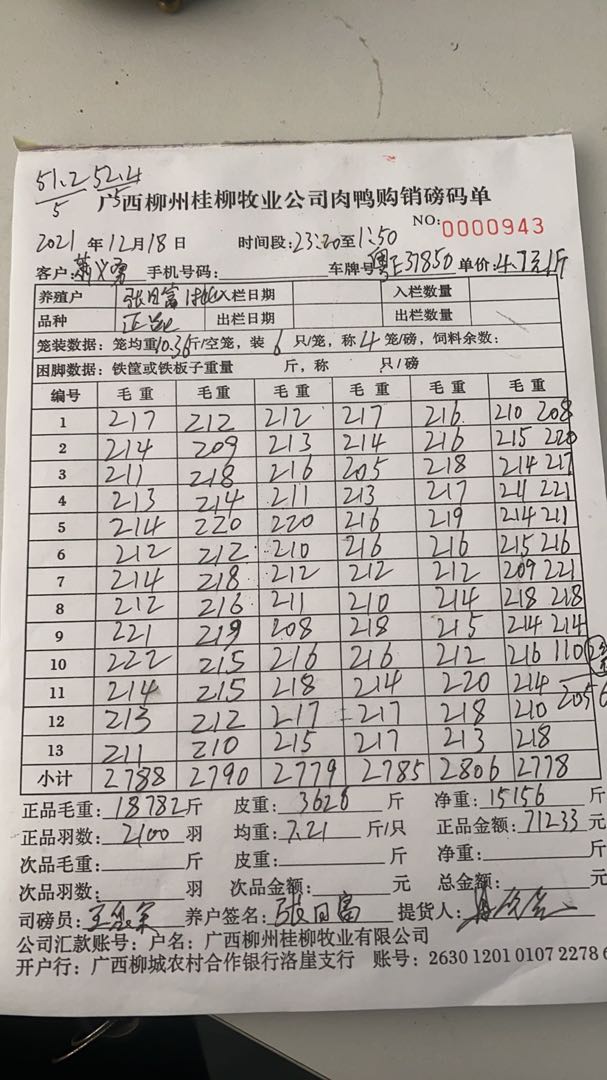 51.2 52.4
5 5
广西柳州桂柳牧业公司肉鸭购销磅码单
NO: 0000943
2021 年 12 月 18 日 时间段: 23:20 至 1:50
客户: 手机号码: 车牌号 粤E37850 单价: 4.7元/斤
养殖户 张日富 入栏日期 入栏数量
品种 正品 出栏日期 出栏数量
笼装数据: 笼均重 10.36 斤/空笼, 装 6 只/笼, 称 4 笼/磅, 饲料余数:
困脚数据: 铁筐或铁板子重量 斤, 称 只/磅
编号 毛重 毛重 毛重 毛重 毛重 毛重
1 217 212 212 217 216 210 208
2 214 209 213 214 216 215 220
3 211 218 216 205 218 214 217
4 213 214 211 213 217 211 221
5 214 220 220 216 219 214 211
6 212 212 210 216 216 215 216
7 214 218 212 212 212 209 221
8 212 216 211 210 214 218 218
9 221 219 208 218 215 214 214
10 222 215 216 216 212 216 110
11 214 215 218 214 220 214 2056
12 213 212 217 217 218 210
13 211 210 215 217 213 218
小计 2788 2790 2779 2785 2806 2778
正品毛重: 18782 斤 皮重: 3626 斤 净重: 15156 斤
正品羽数: 2100 羽 均重: 7.21 斤/只 正品金额: 71233 元
次品毛重: 斤 皮重: 斤 净重: 斤
次品羽数: 羽 次品金额: 元 总金额: 元
司磅员: 养户签名: 张日富 提货人:
公司汇款账号: 户名: 广西柳州桂柳牧业有限公司
开户行: 广西柳城农村合作银行洛崖支行 账号: 2630 1201 0107 2278 6